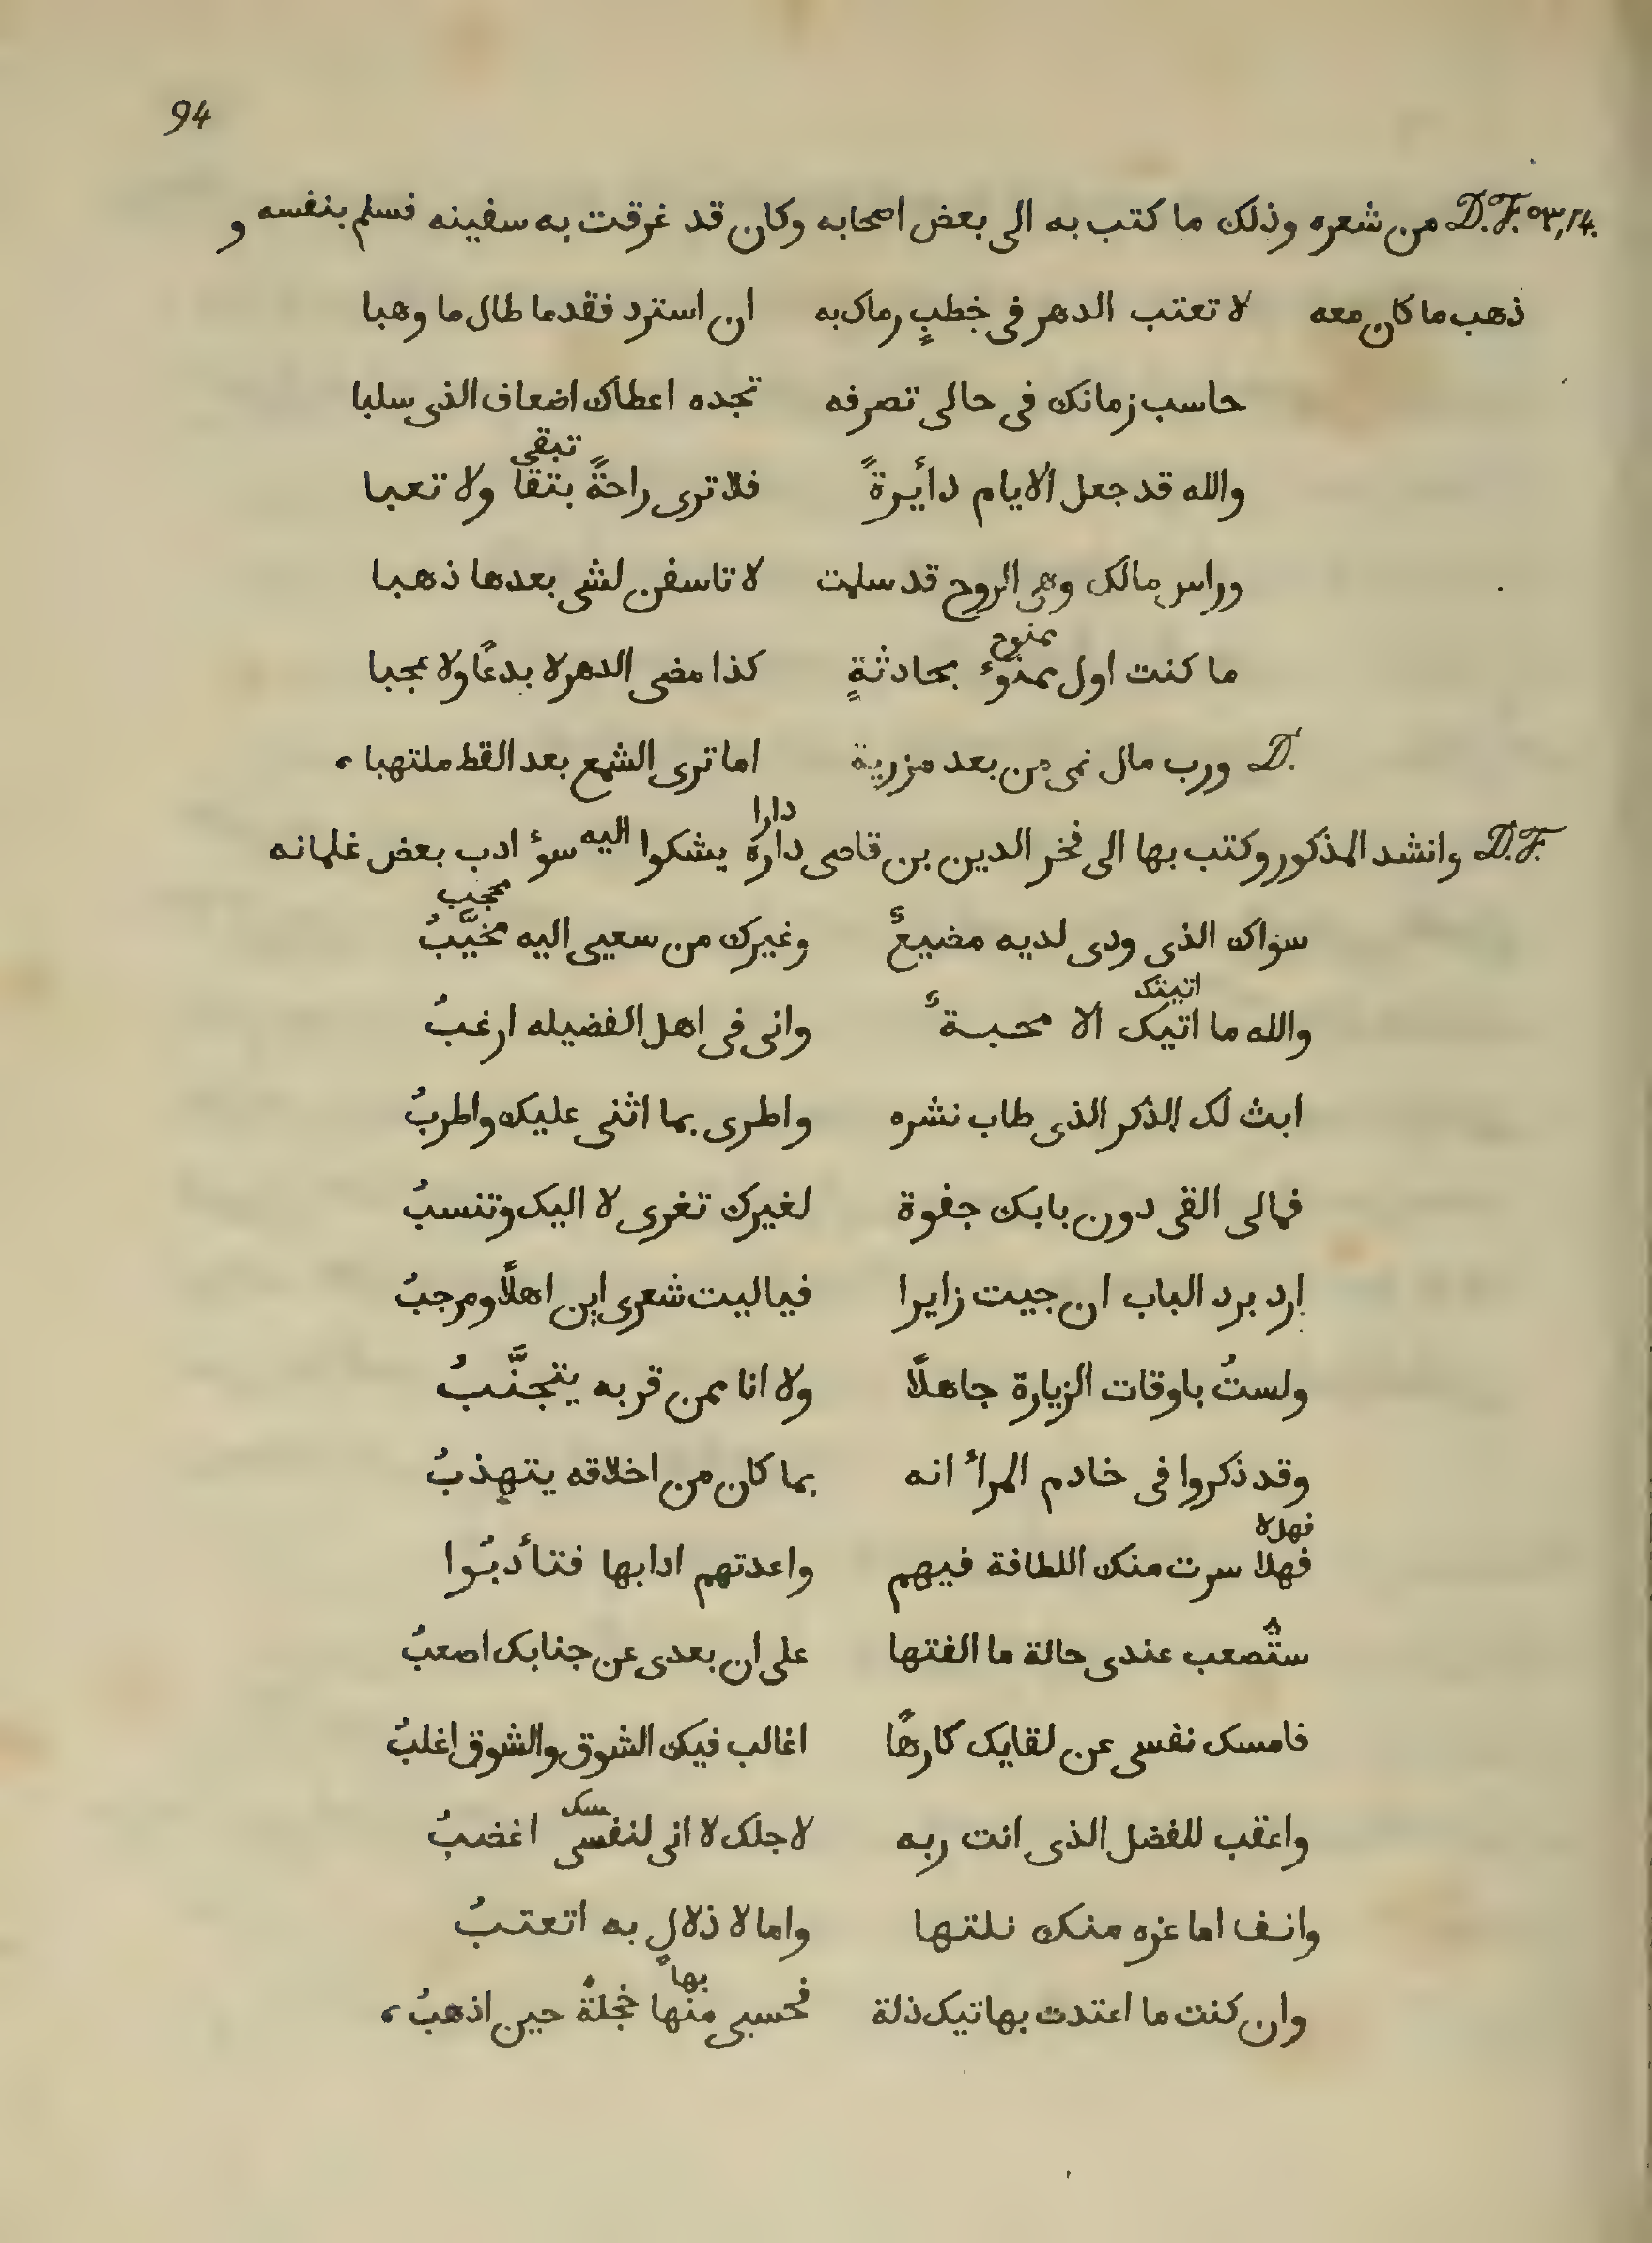 94
D.F. ٥٣,١٤. من شعره وذلك ما كتب به الى بعض اصحابه وكان قد غرقت به سفينه فسلم بنفسه و
ذهب ما كان معه لا تعتب الدهر فى خطبٍ رماك به ان استرد فقدما طال ما وهبا
حاسب زمانك فى حالى تصرفه تجده اعطاك اضعاف الذى سلبا
تبقى
والله قد جعل الايام دأيرةً فلا ترى راحةً بتقا ولا تعبا
وراس مالك وهى الروح قد سلمت لا تاسفن لشى بعدها ذهبا
ممنوح
ما كنت اول ممنوء بحادثةٍ كذا مضى الدهر لا بدعًا ولا عجبا
D. ورب مال نمى من بعد مزرية اما ترى الشمع بعد القط ملتهبا
دارا
D.F. وانشد المذكور وكتب بها الى فخر الدين بن قاضى دارة يشكوا اليه سوء ادب بعض غلمانه
محجب
سواك الذى ودى لديه مضيعٌ وغيرك من سعيى اليه مخيَّبُ
اتيتك
والله ما اتيك الا محبةٌ وانى فى اهل الفضيله ارغبُ
ابث لك الذكر الذى طاب نشره واطرى بما اثنى عليك واطربُ
فمالى القى دون بابك جفوة لغيرك تغرى لا اليك وتنسبُ
ارد برد الباب ان جيت زايرا فياليت شعرى اين اهلًا ومرحبُ
ولستُ باوقات الزيارة جاهلًا ولا انا ممن قربه يتجنَّبُ
وقد ذكروا فى خادم المرأ انه بما كان من اخلاقه يتهذبُ
فهلا
فهلا سرت منك اللطافة فيهم واعدتهم ادابها فتأدبُوا
ستصعب عندى حالة ما الفتها على ان بعدى عن جنابك اصعبُ
فامسك نفسى عن لقايك كارهًا اغالب فيك الشوق والشوق اغلبُ
سك
واعقب للفضل الذى انت ربه لاجلك لا انى لنفسى اغضبُ
وانف اما عزه منك نلتها واما لا ذلالٍ به اتعتبُ
بها
وان كنت ما اعتدت بهاتيك ذلة فحسبى منها خجلةٌ حين اذهبُ